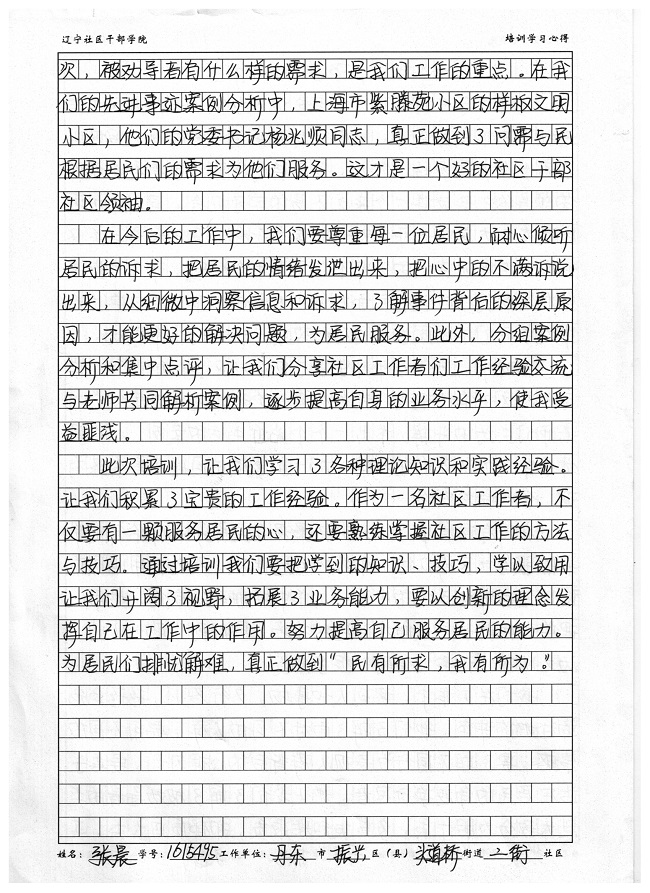 辽宁社区干部学院 培训学习心得
次，被劝导者有什么样的需求，是我们工作的重点。在我
们的先进事迹案例分析中，上海市紫藤苑小区的样板文明
小区，他们的党委书记杨兆顺同志，真正做到了问需与民
根据居民们的需求为他们服务。这才是一个好的社区干部
社区领袖。
在今后的工作中，我们要尊重每一位居民，耐心倾听
居民的诉求，把居民的情绪发泄出来，把心中的不满诉说
出来，从细微中洞察信息和诉求，了解事件背后的深层原
因，才能更好的解决问题，为居民服务。此外，分组案例
分析和集中点评，让我们分享社区工作者们工作经验交流
与老师共同解析案例，逐步提高自身的业务水平，使我受
益匪浅。
此次培训，让我们学习了各种理论知识和实践经验。
让我们积累了宝贵的工作经验。作为一名社区工作者，不
仅要有一颗服务居民的心，还要熟练掌握社区工作的方法
与技巧。通过培训我们要把学到的知识、技巧，学以致用
让我们开阔了视野，拓展了业务能力，要以创新的理念发
挥自己在工作中的作用。努力提高自己服务居民的能力。
为居民们排忧解难，真正做到“民有所求，我有所为。”
姓名：张晨 学号：1615495 工作单位：丹东 市 振兴 区（县） 头道桥 街道 二街 社区